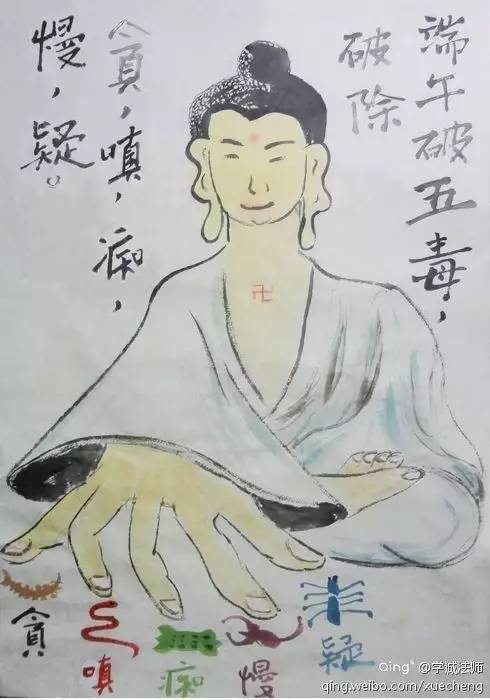 端午破五毒，
破除
貪，嗔，痴，
慢，疑。
貪
嗔
痴
慢
疑
Qing @学诚法师
qingweibo.com/xuecheng